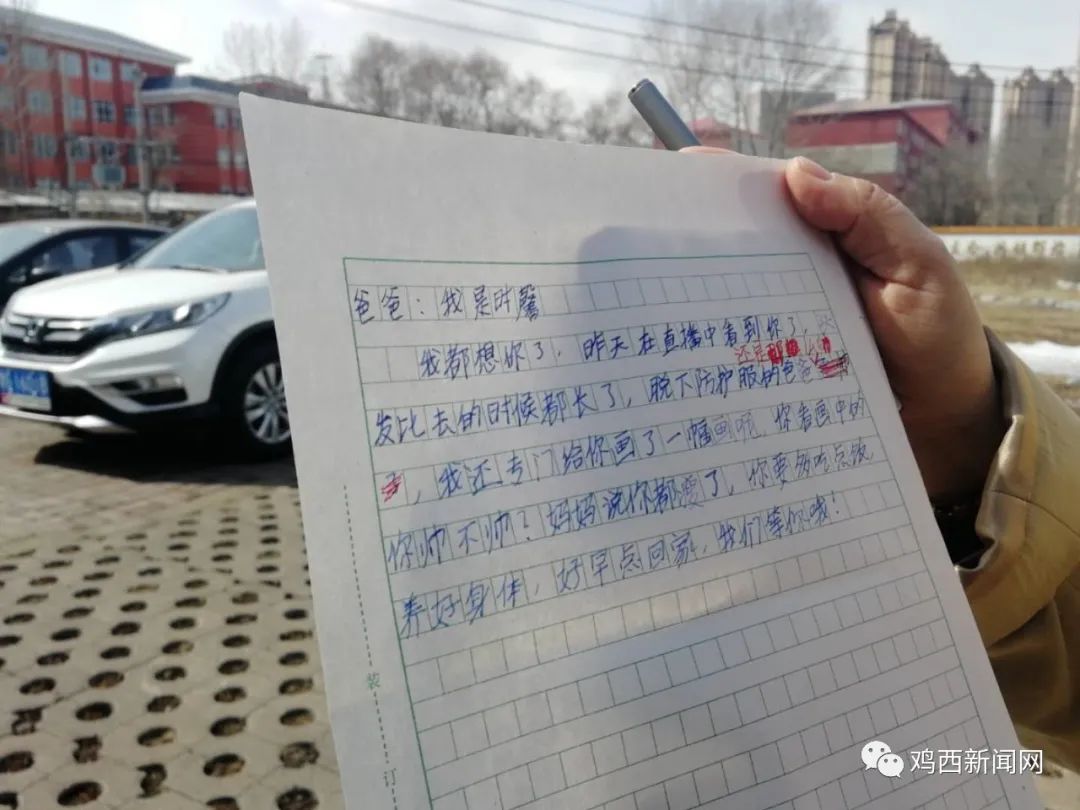 爸爸：我是时馨
我都想你了，昨天在直播中看到你了，头
还是那么
发比去的时候都长了，脱下防护服的爸爸
，我还专门给你画了一幅画呢，你看画中的
你帅不帅？妈妈说你都瘦了，你要多吃点饭，
养好身体，好早点回家，我们等你哦！
装
订
鸡西新闻网